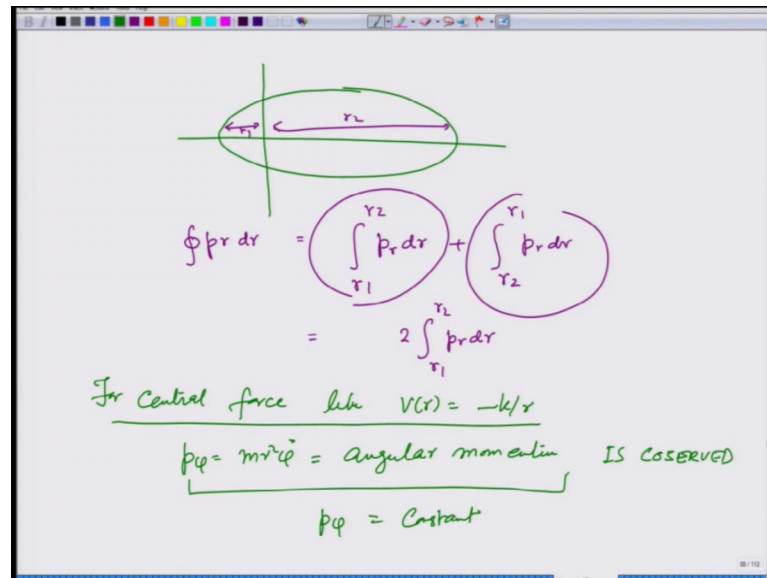 r1 r2
∮ pr dr = ∫_{r1}^{r2} pr dr + ∫_{r2}^{r1} pr dr
= 2 ∫_{r1}^{r2} pr dr
For Central force like V(r) = -k/r
pφ = mr²φ̇ = angular momentum IS COSERVED
pφ = Constant